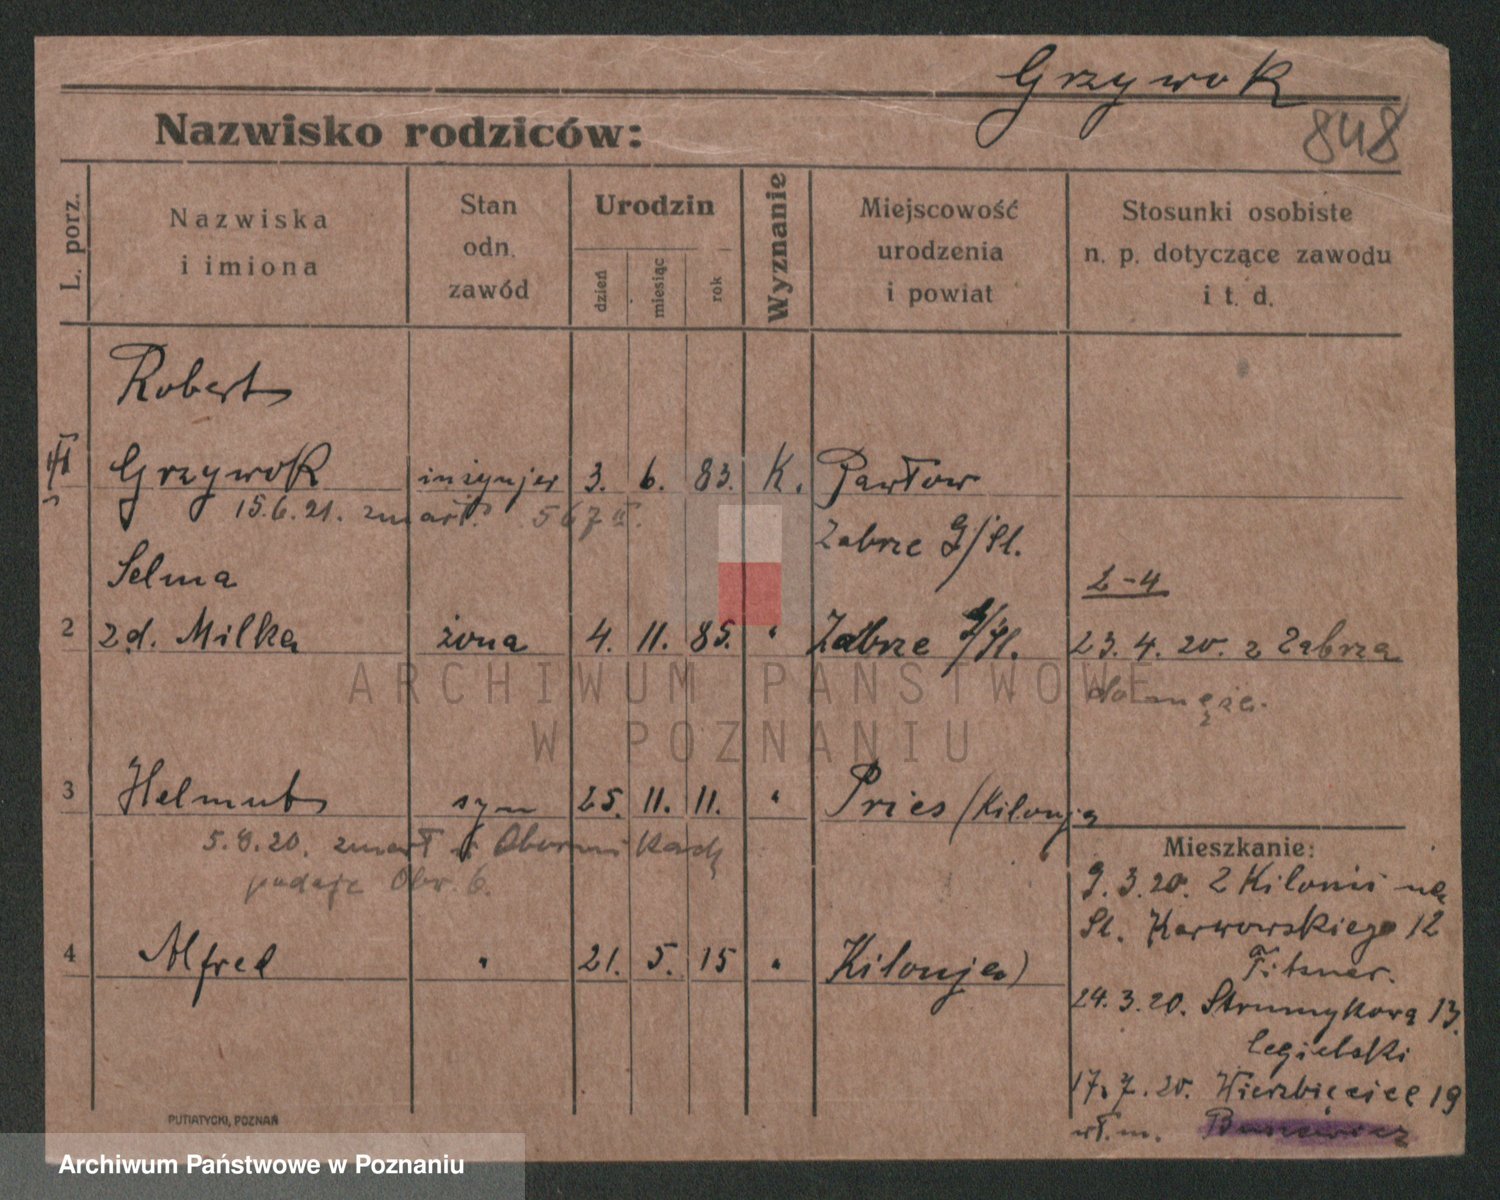 Grzywok
848
Nazwisko rodziców:
L. porz.
Nazwiska
i imiona
Stan
odn.
zawód
Urodzin
dzień
miesiąc
rok
Wyznanie
Miejscowość
urodzenia
i powiat
Stosunki osobiste
n. p. dotyczące zawodu
i t. d.
Robert
Grzywok inżynjer 3. 6. 83. K. Pawłow
15.6.21. zmarł. 567
Zabrze G/Sl.
Selma
2-4
2 zd. Milka żona 4. 11. 85. " Zabrze G/Sl. 23. 4. 20. z Zabrza
do męża.
3 Helmut syn 25. 11. 11. " Pries (Kilonja
5.8.20. zmarł w Obornikach
podaje Obr. 6.
Mieszkanie:
9. 3. 20. z Kilonii na
Sl. Karwowskiego 12
4 Alfred " 21. 5. 15 " Kilonja)
Fitzner.
24. 3. 20. Strumykowa 13.
Cegielski
17. 7. 20. Wierzbięcice 19
wł. m.
PUTIATYCKI, POZNAŃ
ARCHIWUM PAŃSTWOWE
W POZNANIU
Archiwum Państwowe w Poznaniu